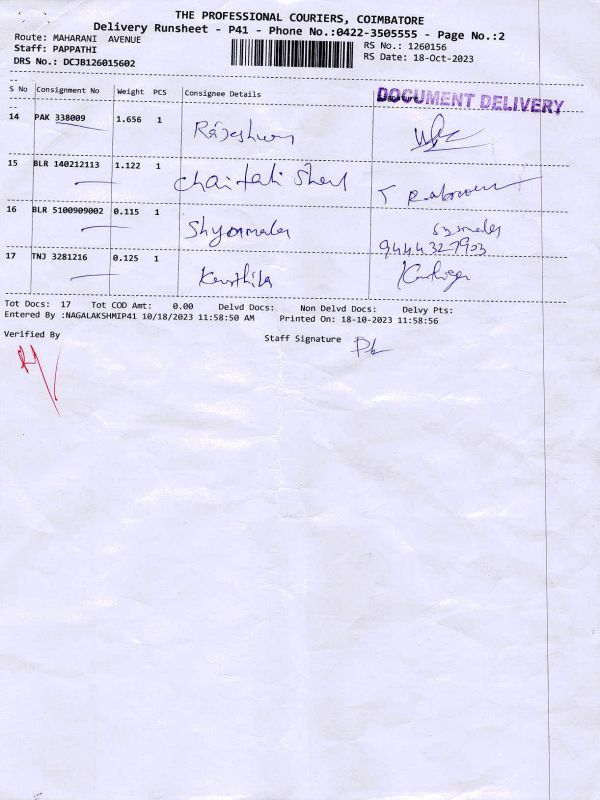 THE PROFESSIONAL COURIERS, COIMBATORE
Delivery Runsheet - P41 - Phone No.:0422-3505555 - Page No.:2
Route: MAHARANI AVENUE
RS No.: 1260156
Staff: PAPPATHI
RS Date: 18-Oct-2023
DRS No.: DCJB126015602
S No Consignment No Weight PCS Consignee Details
DOCUMENT DELIVERY
14 PAK 338009 1.656 1 Rajeshwary
15 BLR 140212113 1.122 1 Chaitali Shent
16 BLR 5100909002 0.115 1 Shyamala
9444327903
17 TNJ 3281216 0.125 1 Keerthika
Tot Docs: 17 Tot COD Amt: 0.00 Delvd Docs: Non Delvd Docs: Delvy Pts:
Entered By :NAGALAKSHMIP41 10/18/2023 11:58:50 AM Printed On: 18-10-2023 11:58:56
Verified By
Staff Signature